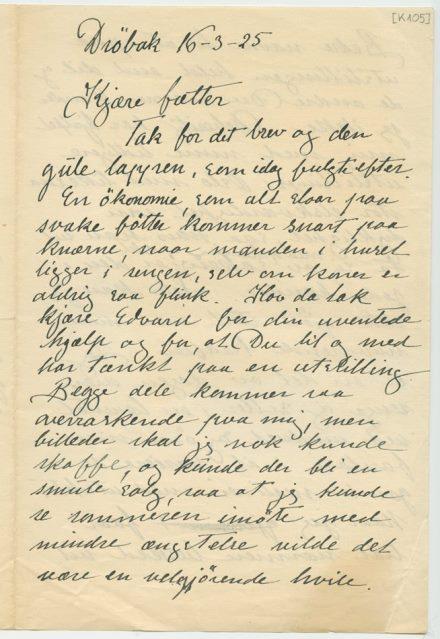 [K105]
Dröbak 16-3-25
Kjære fætter
Tak for det brev og den
gule lappen, som idag fulgte efter.
En ökonomie, som alt staar paa
svake fötter kommer snart paa
knærne, naar manden i huset
ligger i sengen, selv om konen er
aldrig saa flink. Hav da tak
kjære Edvard for din uventede
hjælp og for, at Du til og med
har tænkt paa en utstilling
Begge dele kommer saa
overraskende paa mig, men
billeder skal jeg nok kunde
skaffe, og kunde der bli en
smule salg saa at jeg kunde
se sommeren imöte med
mindre ængstelse vilde det
være en velgjörende hvile.